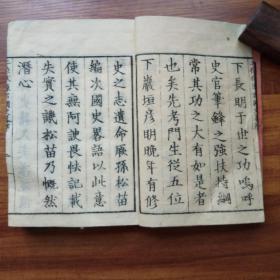 下長明于世之功嗚呼
史官筆鋒之強扶持綱
常其功之大有如是者
也矣先考門生從五位
下巖垣彦明晩年有修
史之志遺命辰孫松苗
編次國史畧語以此意
使其無阿諛畏怯記載
失實之譏松苗乃慨然
潛心